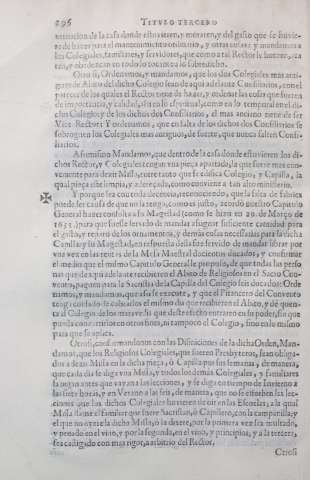 396 TITVLO TERCERO
uernacion de la casa donde estuuieren, y meraren, y del gasto que se huuie-
re de hazer para el mantenimiento ordinario, y otras cosas y mandaren a
los Colegiales, familiares, y seruidores, que como a tal Rector le honren,
ten, y obedezcan en todo lo tocante a lo sobredicho.
Otrosi, Ordenamos, y mandamos, que los dos Colegiales mas anti-
guos de Abito del dicho Colegio sean de aqui adelante Consiliarios, con el
parecer de los quales el Rector tiene de hazer, y ordenar las cosas que fueren
de importancia, y calidad, assi en lo espiritual, como en lo temporal en el di-
cho Colegio y de los dichos dos Consiliarios, el mas anciano tiene de ser
Vice Rector: Y ordenamos, que en falta de los dichos dos Consiliarios se
subroguen los Colegiales mas antiguos, de suerte, que nunca falten Consi-
liarios.
Assimismo Mandamos, que dentro de la casa donde estuuieren los di-
chos Rector, y Colegiales tengan vna pieça apartada, la que fuere mas con-
uiniente para dezir Missa, entre tanto que se edifica Colegio, y Capilla, la
qual pieça este limpia, y adereçada, como conuiene a tan alto ministerio.
Y porque sea con toda decencia, reconociendo, que la falta de fabrica
puede ser causa de que no la tenga, como es justo, acordó nuestro Capitulo
General hazer consulta a su Magestad (como se hizo en 29. de Março de
1652.) para que fuesse seruido de mandar assignar suficiente cantidad para
el gasto, y reparo de los ornamentos, y demàs cosas necessarias para la dicha
Capilla: y su Magestad, en respuesta della fue seruido de mandar librar por
vna vez en las rentas de la Mesa Maestral docientos ducados, y conformar
se con lo que el mismo Capitulo General le propuso, de que todas las perso
nas que de aqui adelante recibieren el Abito de Religiosos en el Sacro Con-
uento, paguen para la Sacristia de la Capilla del Colegio seis ducados: Orde
namos, y mandamos, que assi se execute, y que el Prior del Conuento
tenga cuidado de cobrarlos el mismo dia que recibieren el Abito, y de que en-
tra al Colegio de los marauedis que deste efecto entraren en su poder, sin que
pueda conuertirlos en otros fines, ni tampoco el Colegio, sino en lo mismo
para que se aplica.
Otrosi, conformandonos con las Difiniciones de la dicha Orden, Man-
damos, que los Religiosos Colegiales, que fueren Presbyteros, sean obliga-
dos a dezir Missa en la dicha pieça, ò Capilla por sus semanas, de manera,
que cada dia se diga vna Missa, y todos los demàs Colegiales, y familiares
la oygan antes que vayan a las lecciones, y se diga en tiempo de Inuierno a
las siete horas, y en Verano a las seis, de manera, que no se estoruen las lec-
ciones que los dichos Colegiales huuieren de oir en las Escuelas; a la qual
Missa llame el familiar que fuere Sacristan, ò Capillero, con la campanilla, y
el que no oyere la dicha Missa, ò la dixere, por la primera vez sea multado,
y penado en el vino, y por la segunda, en el vino, y principios, y a la tercera,
sea castigado con mas rigor, a arbitrio del Rector.
Otrosi